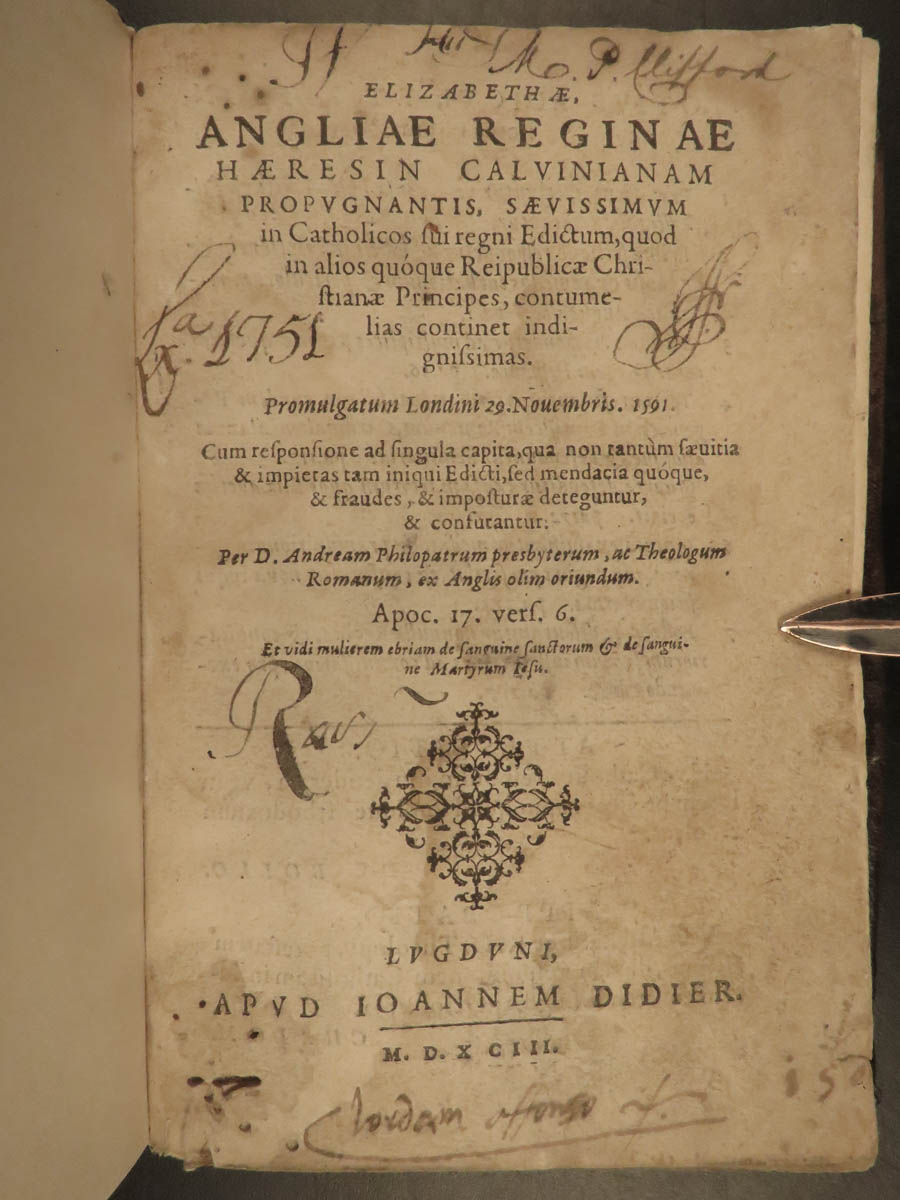 M. P. Clifford
ELIZABETHÆ,
ANGLIAE REGINAE
HÆRESIN CALVINIANAM
PROPVGNANTIS, SÆVISSIMVM
in Catholicos ſui regni Edictum, quod
in alios quóque Reipublicæ Chri-
ſtianæ Principes, contume-
lias continet indi-
gniſsimas.
1751
Promulgatum Londini 29. Nouembris. 1591.
Cum reſponſione ad ſingula capita, qua non tantùm ſæuitia
& impietas tam iniqui Edicti, ſed mendacia quóque,
& fraudes, & impoſturæ deteguntur,
& confutantur.
Per D. Andream Philopatrum presbyterum, ac Theologum
Romanum, ex Anglis olim oriundum.
Apoc. 17. verſ. 6.
Et vidi mulierem ebriam de ſanguine ſanctorum & de ſangui-
ne Martyrum Ieſu.
LVGDVNI,
APVD IOANNEM DIDIER.
M. D. XCIII.